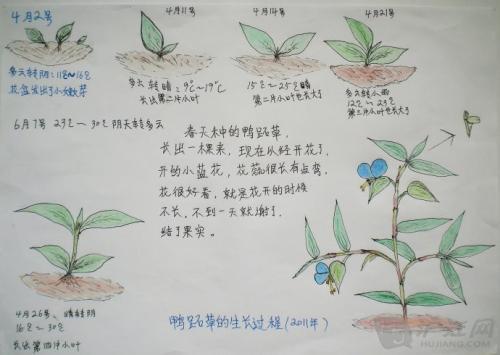 4月2号
多云转阴:11℃~16℃
花盆岀了小嫩芽
4月11号
多云转晴:9℃~19℃
长出第二片小叶
4月14号
15℃~25℃晴
第二片小叶也长大了
4月21号
多云转小雨
12℃~23℃
第三片小叶也长大了
6月7号 23℃~30℃ 阴天转多云
春天种的鸭跖草,
长出一棵来,现在从经开花了,
开的小蓝花,花蕊很长有点弯,
花很好看,就是花开的时候
不长,不到一天就谢了,
结了果实。
4月26号、晴转阴
16℃~30℃
长出第四片小叶
鸭跖草的生长过程(2011年)
沪江网
HUJIANG.COM